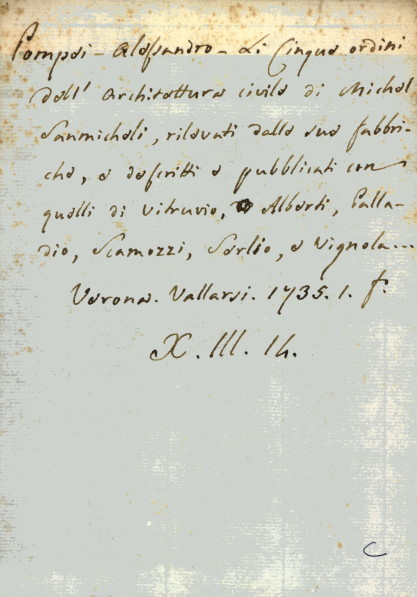 Pompei - Alessandro - Li Cinque ordini
dell' Architettura civile di Michel
Sanmicheli, rilevati dalle sue fabbri-
che, e descritti e pubblicati con
quelli di Vitruvio, Alberti, Palla-
dio, Scamozzi, Serlio, e Vignola...
Verona. Vallarsi. 1735. 1. f.
X. III. 14.
C